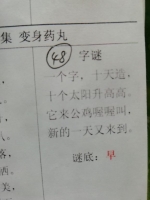 集 变身药丸
48 字谜
一个字，十天造，
十个太阳升高高。
它来公鸡喔喔叫，
新的一天又来到。
谜底：早